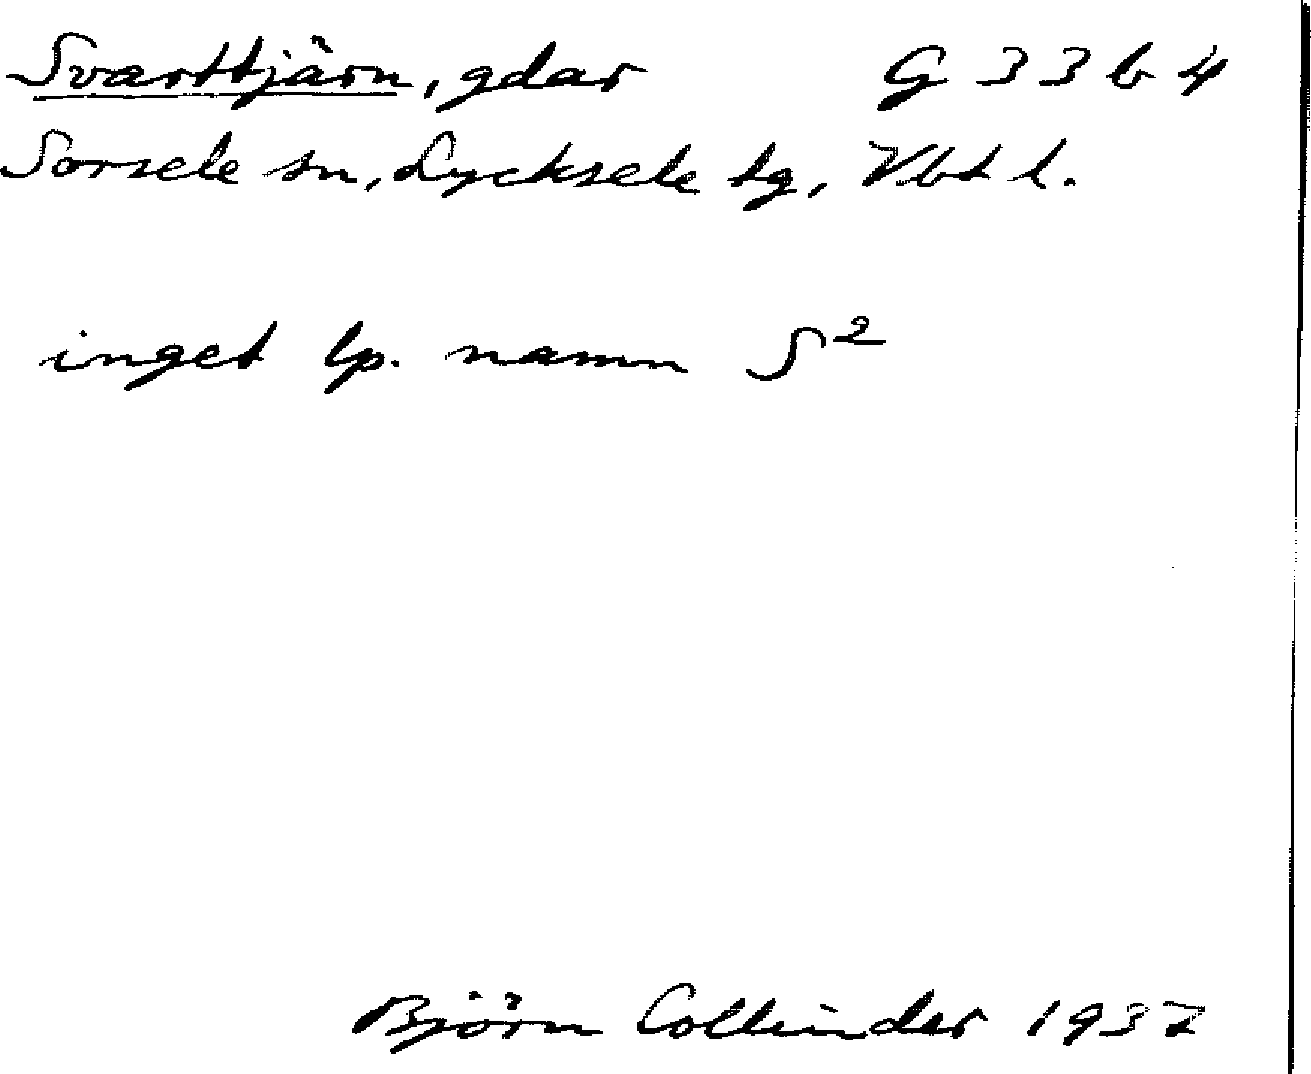 Svarttjärn, gdar G 33 b 4
Sorsele sn, Lycksele tg, Vbt l.
inget lp. namn S²
Björn Collinder 1937